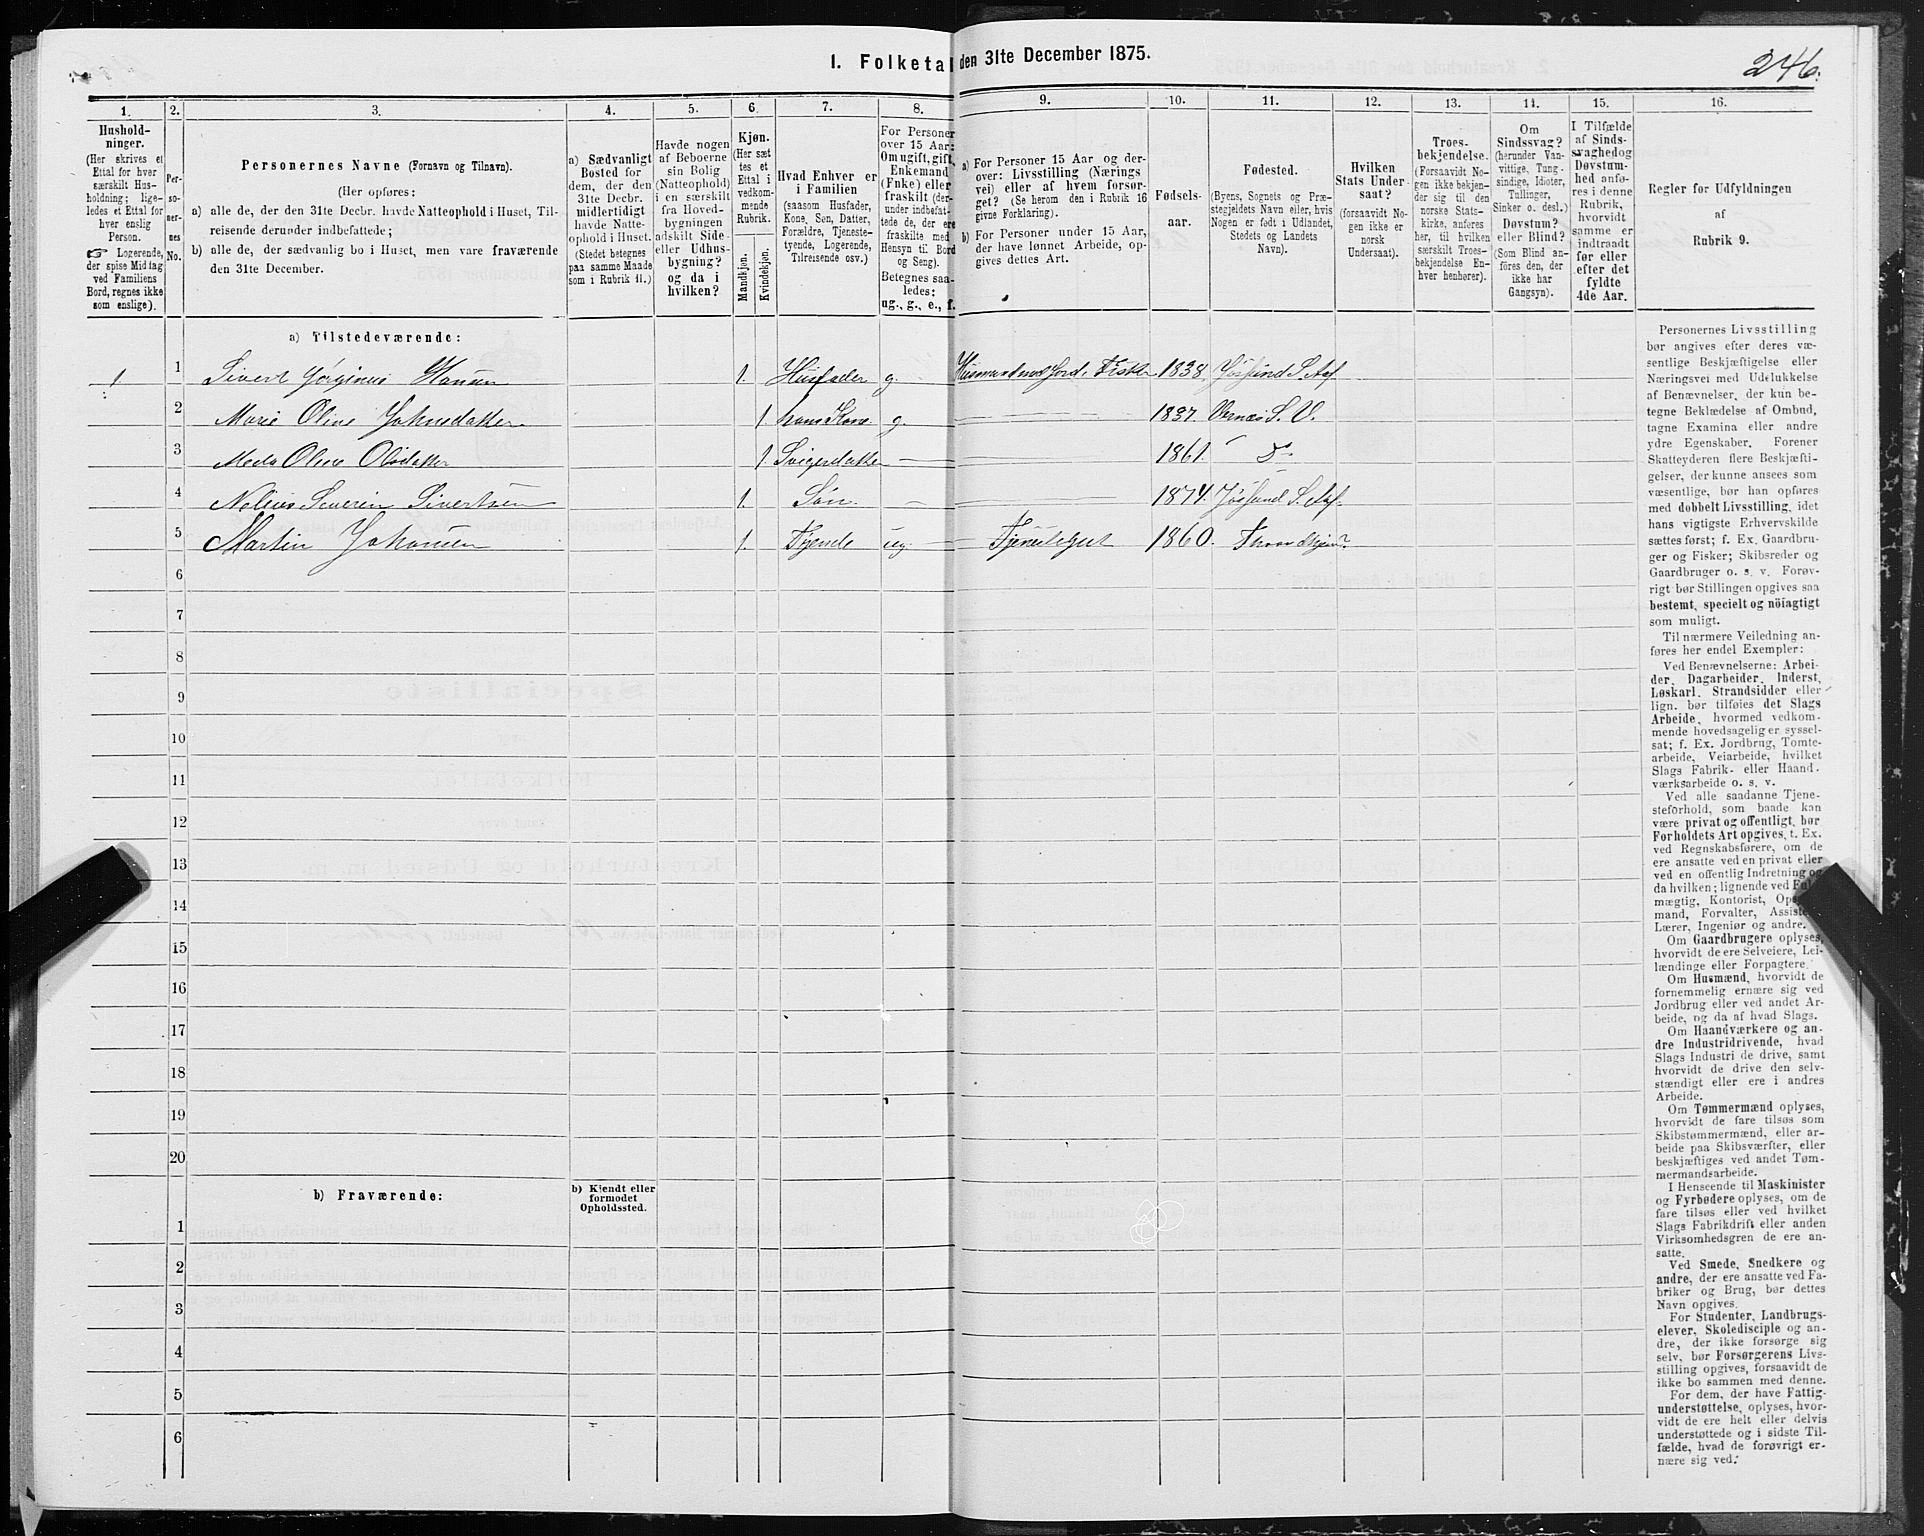 I. Folketal den 31te December 1875.
246.
1. 2. 3. 4. 5. 6. 7. 8. 9. 10. 11. 12. 13. 14. 15. 16.
Hushold-
ninger.
(Her skrives et
Ettal for hver
særskilt Hus-
holdning; lige-
ledes et Ettal for
hver enslig
Person.
☞ Logerende,
der spise Middag
ved Familiens
Bord, regnes ikke
som enslige).
Per-
so-
ner-
nes
No.
Personernes Navne (Fornavn og Tilnavn).
(Her opføres:
a) alle de, der den 31te Decbr. havde Natteophold i Huset, Til-
reisende derunder indbefattede;
b) alle de, der sædvanlig bo i Huset, men vare fraværende
den 31te December.
a) Sædvanligt
Bosted for
dem, der den
31te Decbr.
midlertidigt
havde Natte-
ophold i Huset.
(Stedet betegnes
paa samme Maade
som i Rubrik 11.)
Havde nogen
af Beboerne
sin Bolig
(Natteophold)
i en særskilt
fra Hoved-
bygningen
adskilt Side-
eller Udhus-
bygning?
og da i
hvilken?
Kjøn.
(Her sæt-
tes et
Ettal i
vedkom-
mende
Rubrik.
Mandkjøn.
Kvindekjøn.
Hvad Enhver er
i Familien
(saasom Husfader,
Kone, Søn, Datter,
Forældre, Tjeneste-
tyende, Logerende,
Tilreisende osv.)
For Personer
over 15 Aar:
Om ugift, gift,
Enkemand
(Enke) eller
fraskilt (der-
under indbefat-
tede de, der ere
fraskilte med
Hensyn til Bord
og Seng).
Betegnes saa-
ledes:
ug., g., e., f.
a) For Personer 15 Aar og der-
over: Livsstilling (Nærings
vei) eller af hvem forsør-
get? (Se herom den i Rubrik 16
givne Forklaring).
b) For Personer under 15 Aar,
der have lønnet Arbeide, op-
gives dettes Art.
Fødsels-
aar.
Fødested.
(Byens, Sognets og Præ-
stegjeldets Navn eller, hvis
Nogen er født i Udlandet,
Stedets og Landets
Navn).
Hvilken
Stats Under-
saat?
(forsaavidt No-
gen ikke er
norsk
Undersaat).
Troes-
bekjendelse.
(Forsaavidt No-
gen ikke bekjen-
der sig til den
norske Stats-
kirke, anføres
her, til hvilken
særskilt Troes-
bekjendelse En-
hver henhører).
Om
Sindssvag?
(herunder Van-
vittige, Tung-
sindige, Idioter,
Tullinger,
Sinker o. desl.)
Døvstum?
eller Blind?
(Som Blind an-
føres den, der
ikke har
Gangsyn).
I Tilfælde
af Sinds-
svaghedog
Døvstum-
hed anfø-
res i denne
Rubrik,
hvorvidt
samme er
indtraadt
før eller
efter det
fyldte
4de Aar.
Regler for Udfyldningen
af
Rubrik 9.
a) Tilstedeværende:
1 1 Sivert Jørginus Hansen 1. Husfader g. Husmand med Jord, Fisker 1838. Jøssund S. Aaf.
2 Marie Oline Johnsdatter 1. hans Kone g. 1837. Vernæs S. V.
3 Meda Oline Olsdatter 1 Svigerdatter 1861. Do
4 Nelius Severin Sivertsen 1. Søn 1874. Jøssund S. Aaf.
5 Martin Johansen 1. Tjende ug. Tjenestegut 1860. Throndhjem?
6
7
8
9
10
11
12
13
14
15
16
17
18
19
20
b) Fraværende:
b) Kjendt eller
formodet
Opholdssted.
1
2
3
4
5
6
Personernes Livsstilling
bør angives efter deres væ-
sentlige Beskjæftigelse eller
Næringsvei med Udelukkelse
af Benævnelser, der kun be-
tegne Beklædelse af Ombud,
tagne Examina eller andre
ydre Egenskaber. Forener
Skatteyderen flere Beskjæfti-
gelser, der kunne ansees som
væsentlige, bør han opføres
med dobbelt Livsstilling, idet
hans vigtigste Erhvervskilde
sættes først; f. Ex. Gaardbru-
ger og Fisker; Skibsreder og
Gaardbruger o. s. v. Forøv-
rigt bør Stillingen opgives saa
bestemt, specielt og nöiagtigt
som muligt.
Til nærmere Veiledning an-
føres her endel Exempler:
Ved Benævnelserne: Arbei-
der, Dagarbeider, Inderst,
Løskarl, Strandsidder eller
lign. bør tilføies det Slags
Arbeide, hvormed vedkom-
mende hovedsagelig er syssel-
sat; f. Ex. Jordbrug, Tomte-
arbeide, Veiarbeide, hvilket
Slags Fabrik- eller Haand-
værksarbeide o. s. v.
Ved alle saadanne Tjene-
steforhold, som baade kan
være privat og offentligt, bør
Forholdets Art opgives, t. Ex.
ved Regnskabsførere, om de
ere ansatte ved en privat eller
ved en offentlig Indretning og
da hvilken; lignende ved Ful-
mægtig, Kontorist, Ops
mand, Forvalter, Assiste
Lærer, Ingeniør og andre.
Om Gaardbrugere oplyses,
hvorvidt de ere Selveiere, Lei-
lændinge eller Forpagtere.
Om Husmænd, hvorvidt de
fornemmelig ernære sig ved
Jordbrug eller ved andet Ar-
beide, og da af hvad Slags.
Om Haandværkere og an-
dre Industridrivende, hvad
Slags Industri de drive, samt
hvorvidt de drive den selv-
stændigt eller ere i andres
Arbeide.
Om Tømmermænd oplyses,
hvorvidt de fare tilsøs som
Skibstømmermænd, eller ar-
beide paa Skibsværfter, eller
beskjæftiges ved andet Tøm-
mermandsarbeide.
I Henseende til Maskinister
og Fyrbødere oplyses, om de
fare tilsøs eller ved hvilket
Slags Fabrikdrift eller anden
Virksomhedsgren de ere an-
satte.
Ved Smede, Snedkere og
andre, der ere ansatte ved Fa-
briker og Brug, bør dettes
Navn opgives.
For Studenter, Landbrugs-
elever, Skoledisciple og an-
dre, der ikke forsørge sig
selv, bør Forsørgerens Livs-
stilling opgives, forsaavidt de
ikke bo sammen med denne.
For dem, der have Fattig-
understøttelse, oplyses, hvor-
vidt de ere helt eller delvis
understøttede og i sidste Til-
fælde, hvad de forøvrigt er-
nære sig ved.